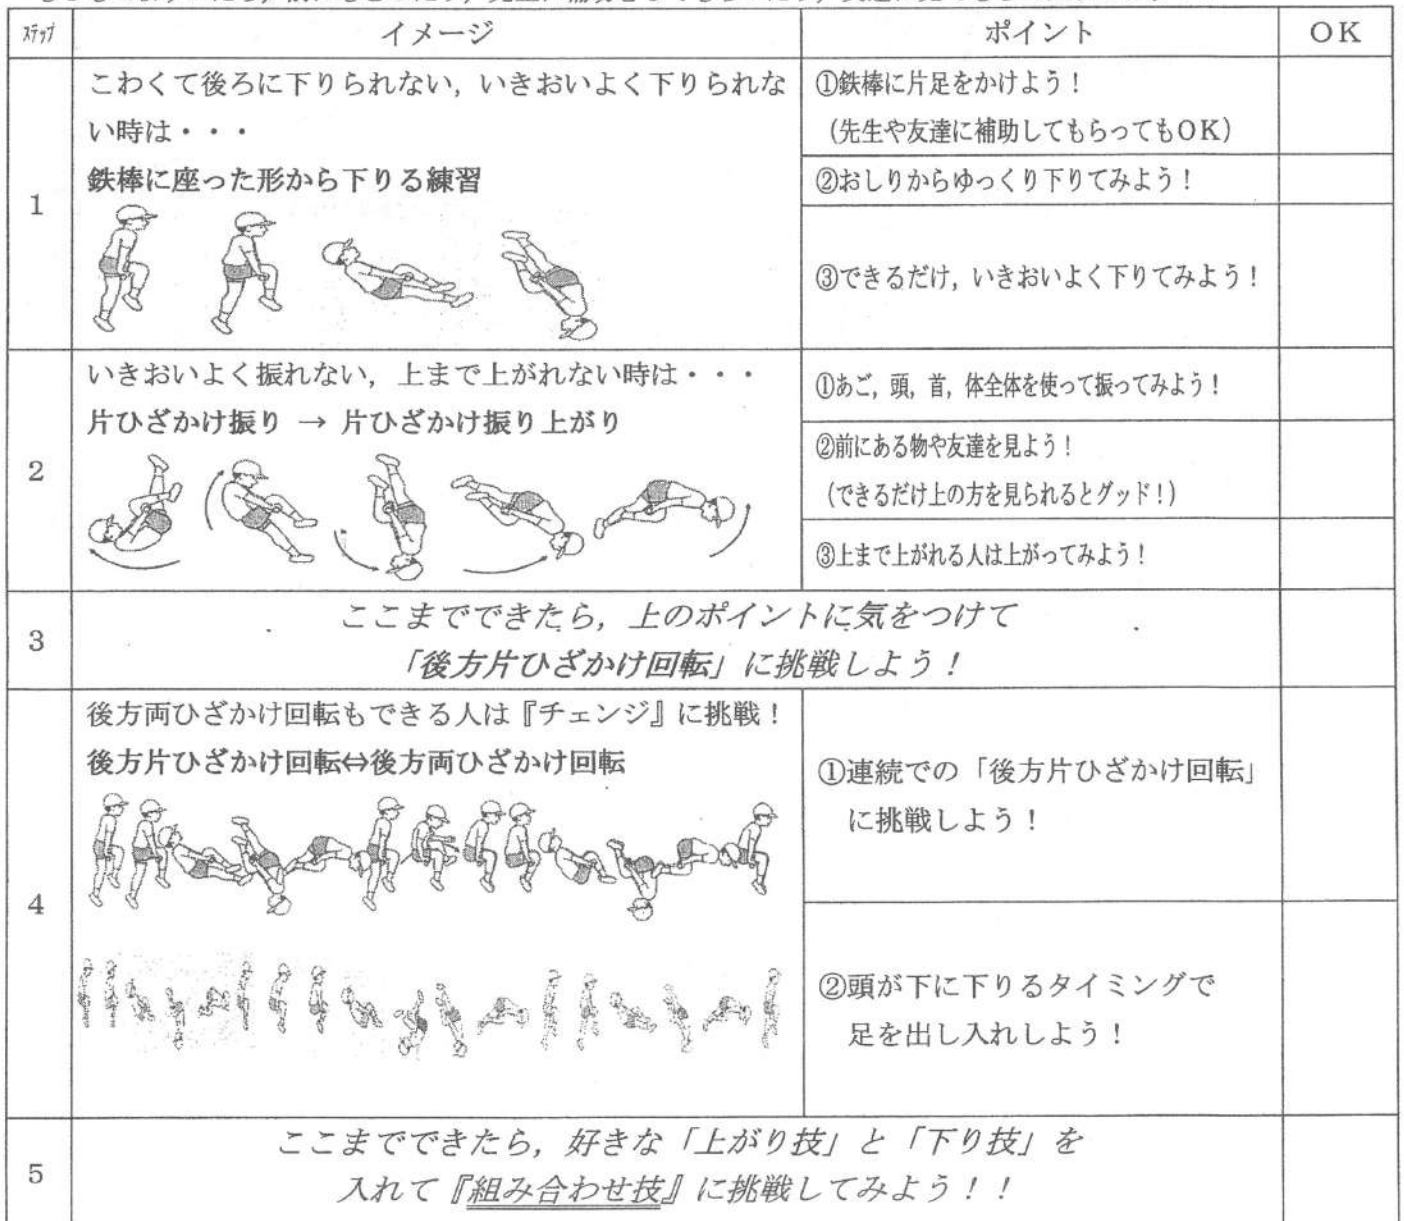 ステップ
イメージ
ポイント
OK
1
こわくて後ろに下りられない，いきおいよく下りられな
い時は・・・
鉄棒に座った形から下りる練習
①鉄棒に片足をかけよう！
（先生や友達に補助してもらってもOK）
②おしりからゆっくり下りてみよう！
③できるだけ，いきおいよく下りてみよう！
2
いきおいよく振れない，上まで上がれない時は・・・
片ひざかけ振り → 片ひざかけ振り上がり
①あご，頭，首，体全体を使って振ってみよう！
②前にある物や友達を見よう！
（できるだけ上の方を見られるとグッド！）
③上まで上がれる人は上がってみよう！
3
ここまでできたら，上のポイントに気をつけて
「後方片ひざかけ回転」に挑戦しよう！
4
後方両ひざかけ回転もできる人は『チェンジ』に挑戦！
後方片ひざかけ回転⇔後方両ひざかけ回転
①連続での「後方片ひざかけ回転」
に挑戦しよう！
②頭が下に下りるタイミングで
足を出し入れしよう！
5
ここまでできたら，好きな「上がり技」と「下り技」を
入れて『組み合わせ技』に挑戦してみよう！！